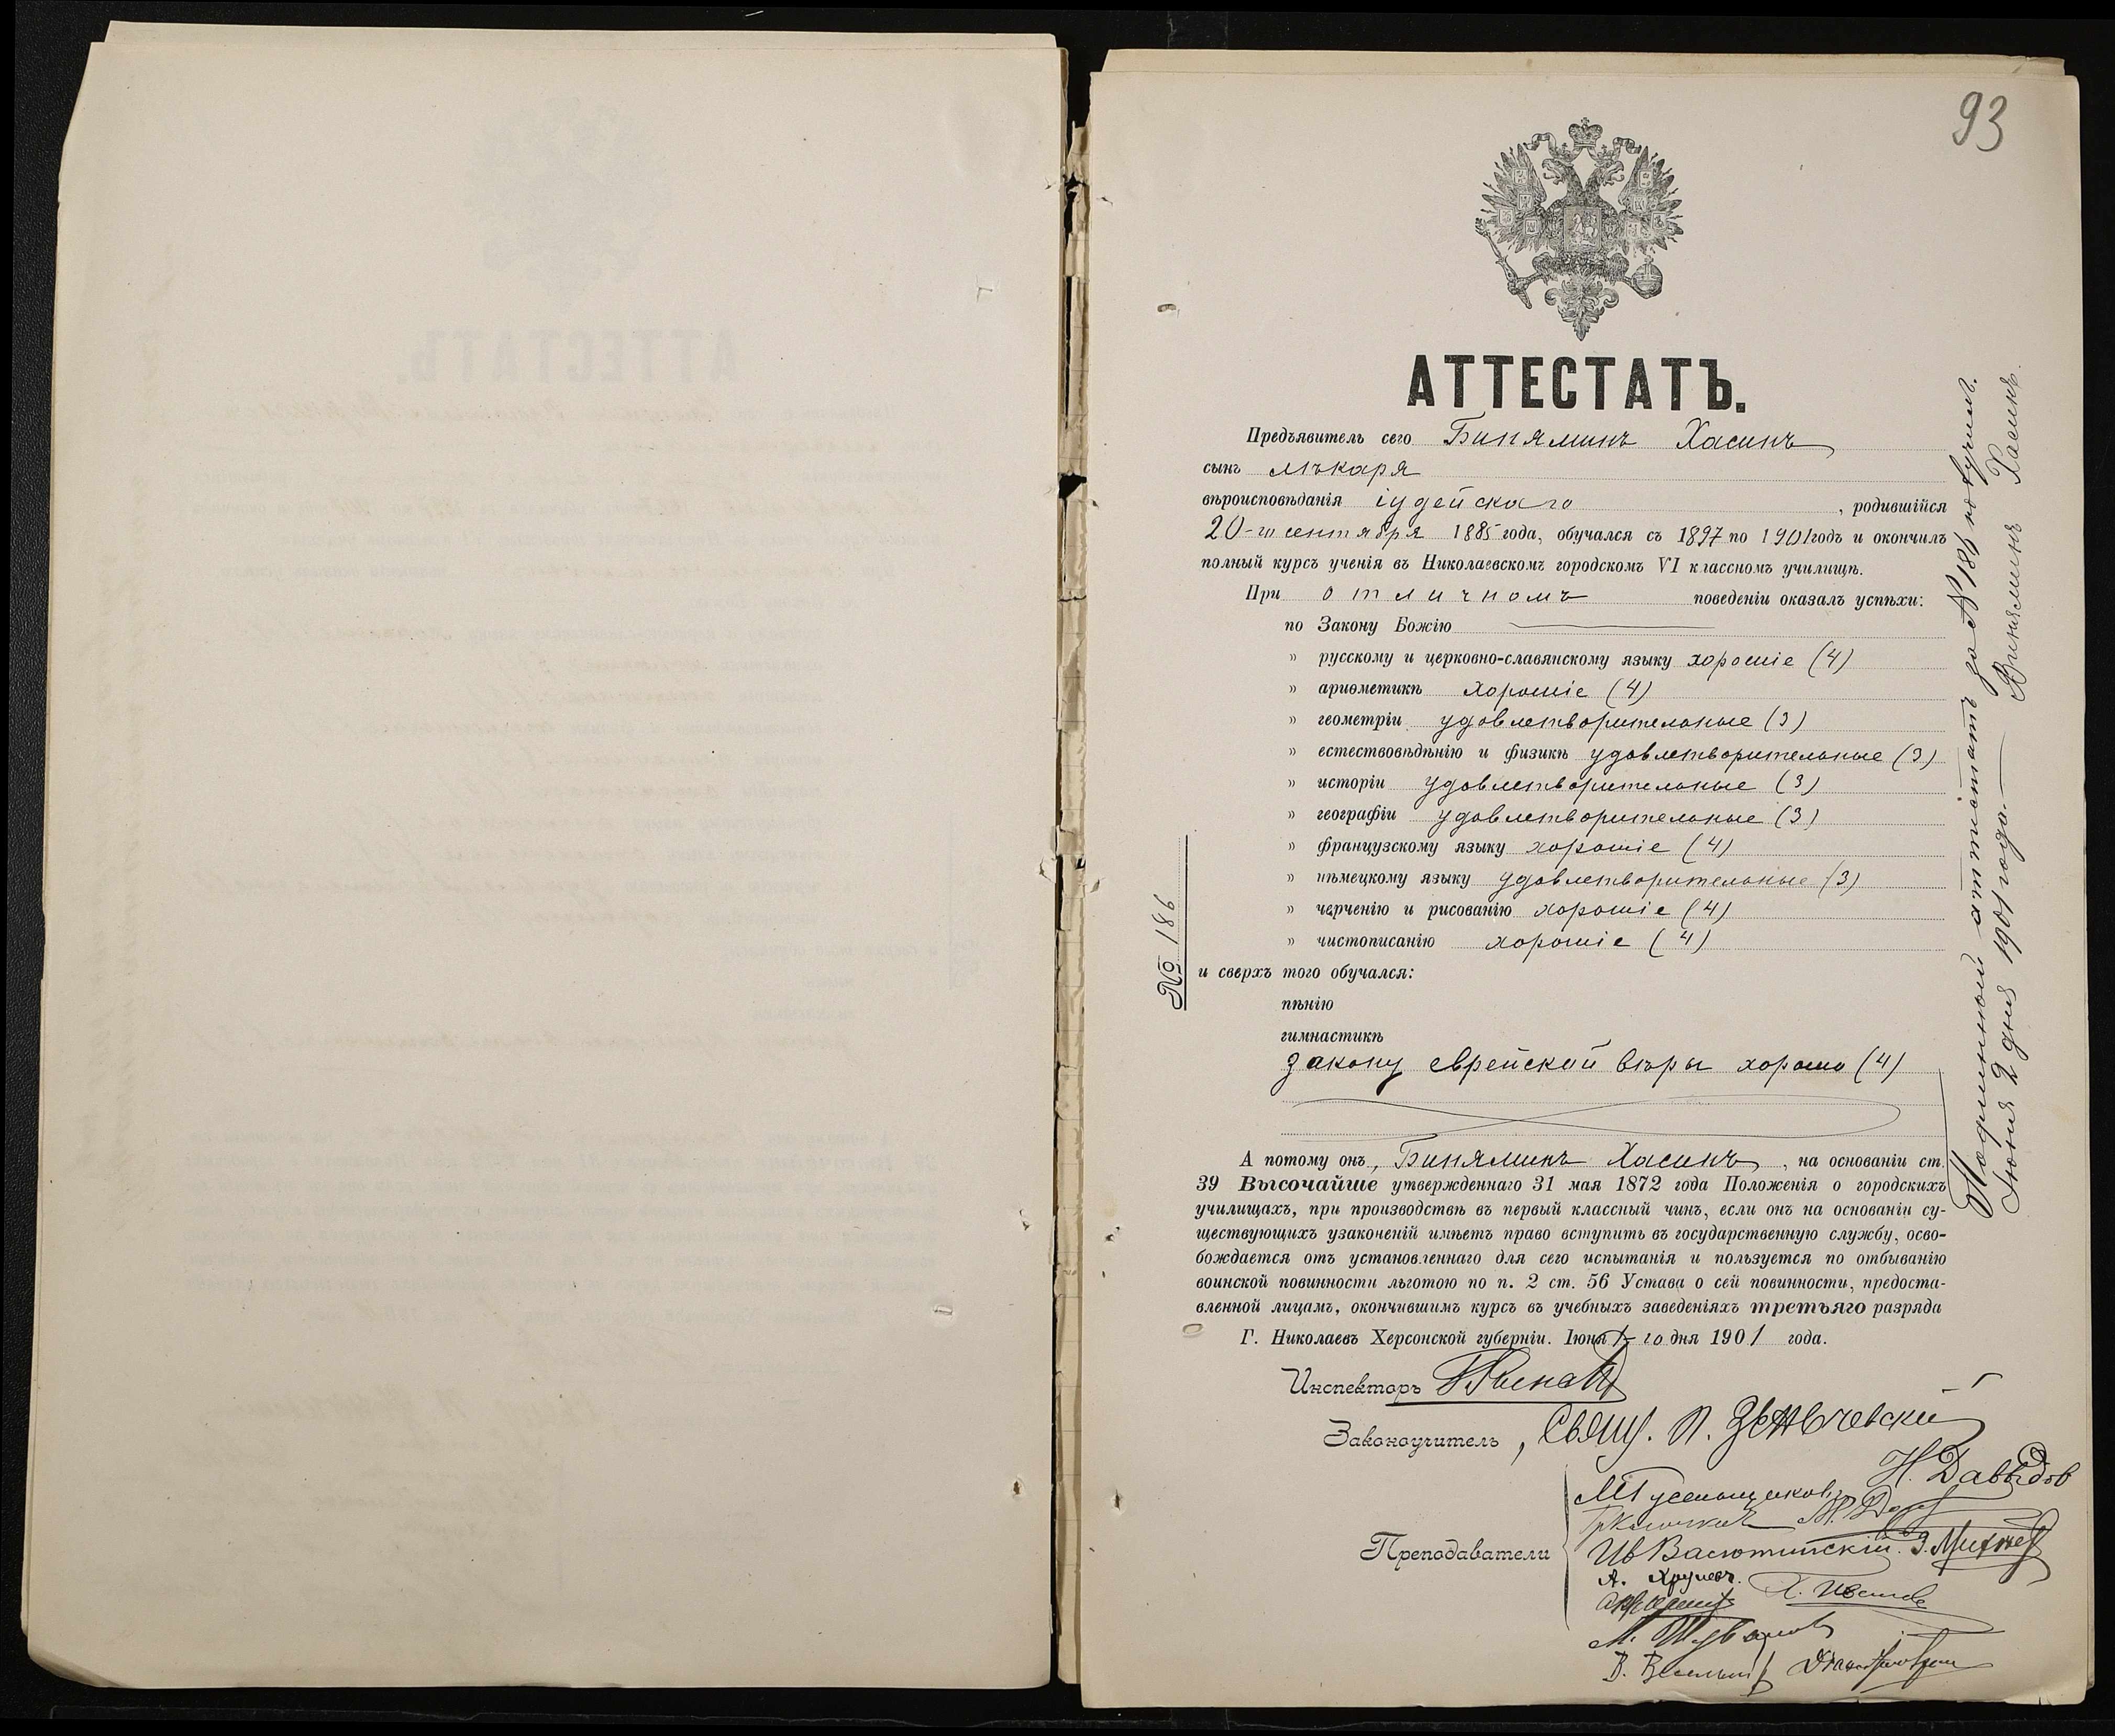 93
АТТЕСТАТЪ.
Предъявитель сего Бинямин Хасинъ
сынъ лѣкаря
вѣроисповѣданія іудейскаго, родившійся
20-го сентября 1885 года, обучался съ 1897 по 1901 годъ и окончилъ
полный курсъ ученія въ Николаевскомъ городскомъ VI классномъ училищѣ.
При отличномъ поведеніи оказалъ успѣхи:
по Закону Божію
" русскому и церковно-славянскому языку хорошіе (4)
" ариѳметикѣ хорошіе (4)
" геометріи удовлетворительные (3)
" естествовѣдѣнію и физикѣ удовлетворительные (3)
" исторіи удовлетворительные (3)
" географіи удовлетворительные (3)
" французскому языку хорошіе (4)
" нѣмецкому языку удовлетворительные (3)
" черченію и рисованію хорошіе (4)
" чистописанію хорошіе (4)
и сверхъ того обучался:
пѣнію
гимнастикѣ
закону еврейской вѣры хорошо (4)
А потому онъ, Бинямин Хасинъ, на основаніи ст.
39 Высочайше утвержденнаго 31 мая 1872 года Положенія о городскихъ
училищахъ, при производствѣ въ первый классный чинъ, если онъ на основаніи су-
ществующихъ узаконеній имѣетъ право вступить въ государственную службу, осво-
бождается отъ установленнаго для сего испытанія и пользуется по отбыванію
воинской повинности льготою по п. 2 ст. 56 Устава о сей повинности, предоста-
вленной лицамъ, окончившимъ курсъ въ учебныхъ заведеніяхъ третьяго разряда
Г. Николаевъ Херсонской губерніи. Іюня 1-го дня 1901 года.
Инспекторъ
Законоучитель, Свящ. П.
Н. Давыдов
Преподаватели
Ив Васютинскій.
А. Хрулевъ.
№ 186
Подлинный аттестатъ за № 186 получилъ.
Іюня 2 дня 1901 года.— Виньяминъ Хасинъ.